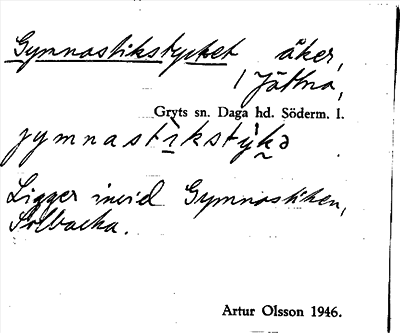 Gymnastikstycket åker,
/ Jättna,
Gryts sn. Daga hd. Söderm. l.
jymnastìkstỳkə
Ligger invid Gymnastiken,
Solbacka.
Artur Olsson 1946.